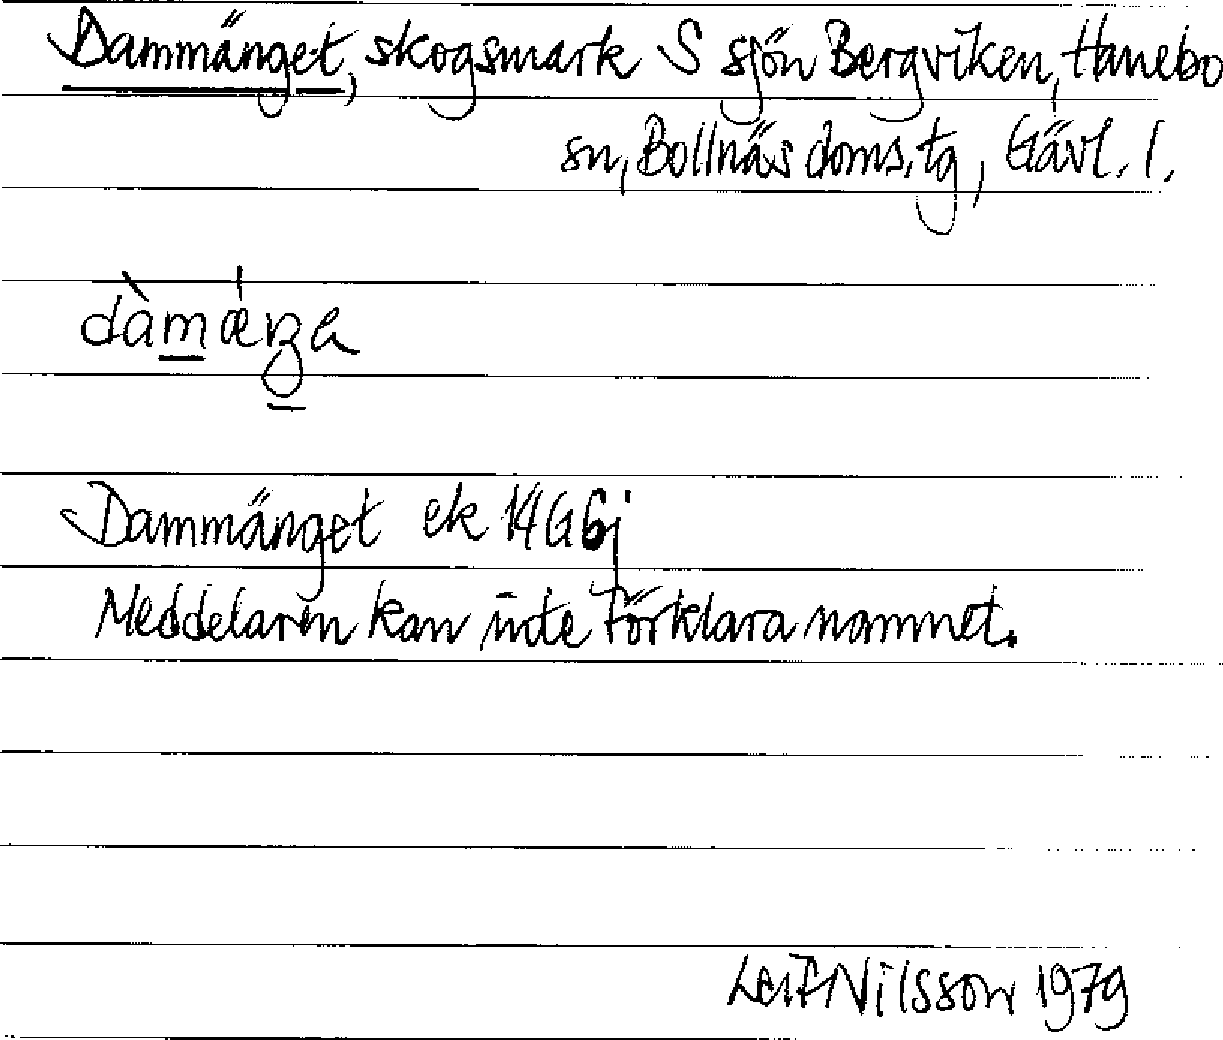 Dammänget, skogsmark S sjön Bergviken, Hanebo
sn, Bollnäs doms.tg, Gävl. l.
Dammänget ek 14G6j
Meddelaren kan inte förklara namnet.
Leif Nilsson 1979